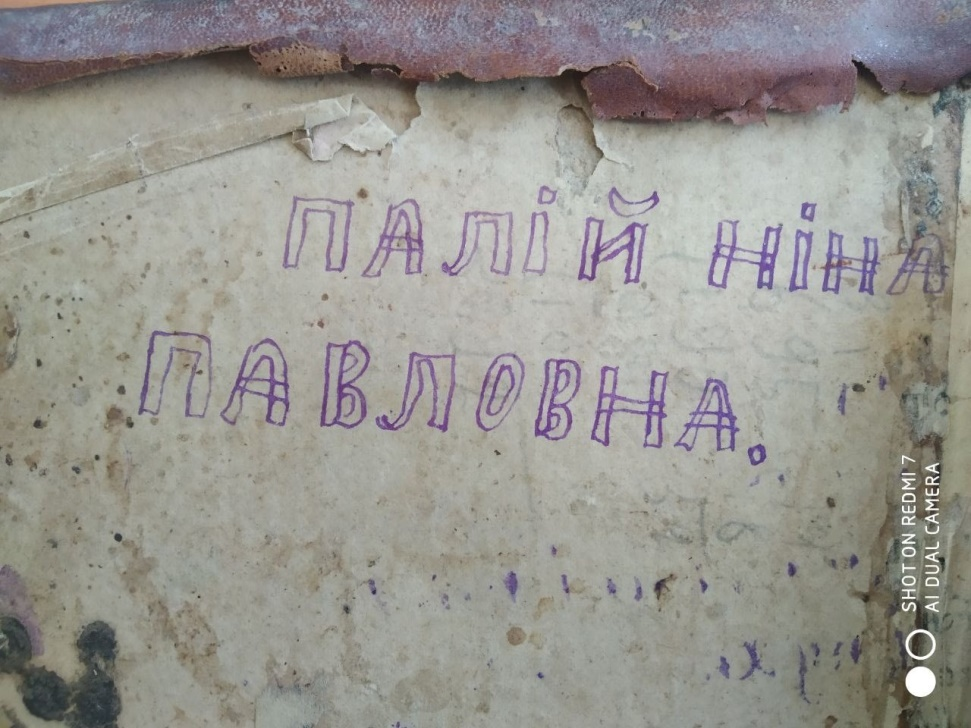 ПАЛІЙ НІНА
ПАВЛОВНА.
SHOT ON REDMI 7
AI DUAL CAMERA